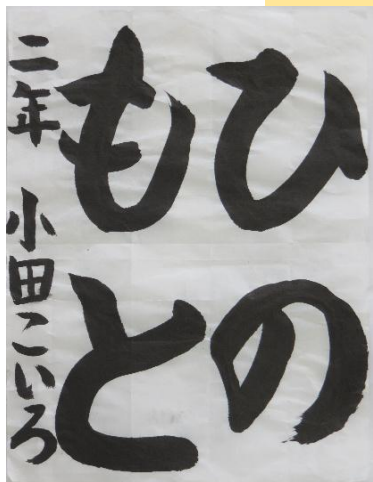 ひの
もと
二年 小田こいろ